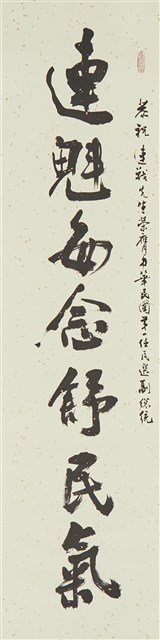 恭祝 連戰先生榮膺中華民國第一任民選副總統
連魁每念舒民氣